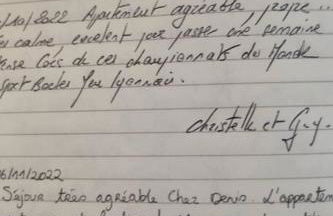 /10/2022 Apartement agréable, propre..
calme, excelent pour passer une semaine
lors de ces championnats du Monde
Sport Boules
Christelle et Guy.
6/11/2022
Séjour très agréable chez Denis. L'appartem